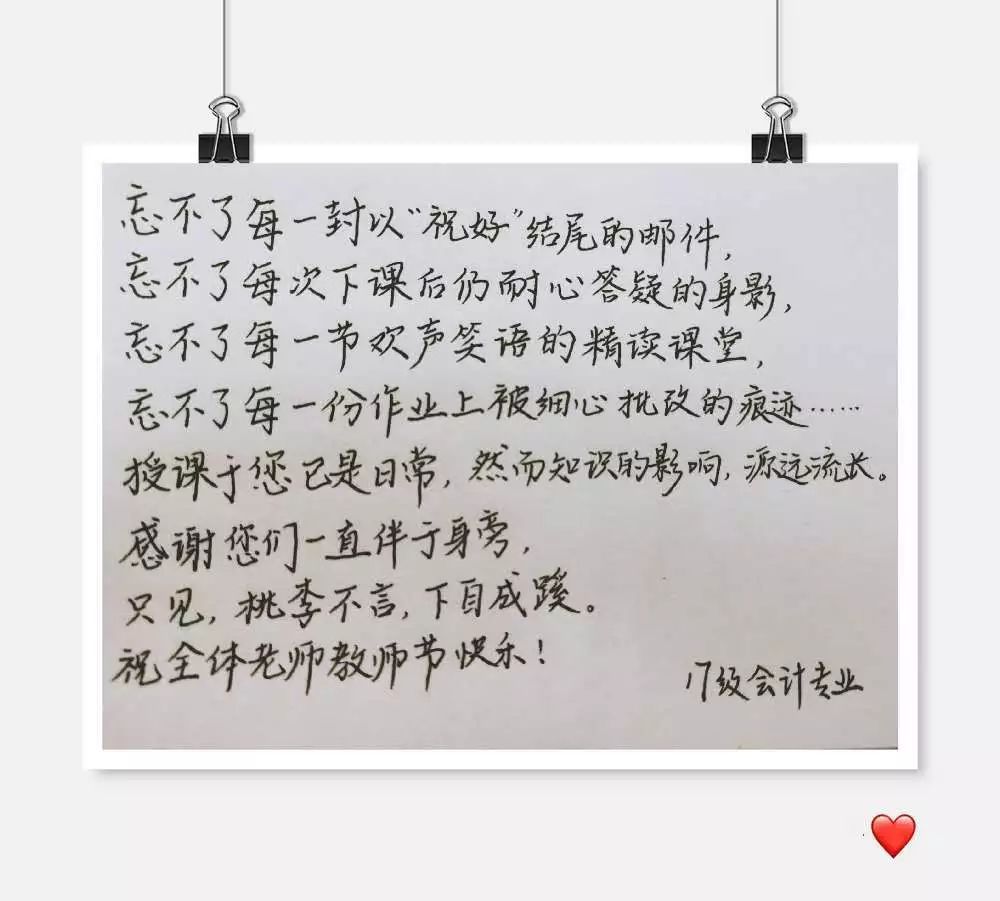 忘不了每一封以“祝好”结尾的邮件,
忘不了每次下课后仍耐心答疑的身影,
忘不了每一节欢声笑语的精读课堂,
忘不了每一份作业上被细心批改的痕迹……
授课于您已是日常,然而知识的影响,源远流长。
感谢您们一直伴于身旁,
只见,桃李不言,下自成蹊。
祝全体老师教师节快乐!
17级会计专业